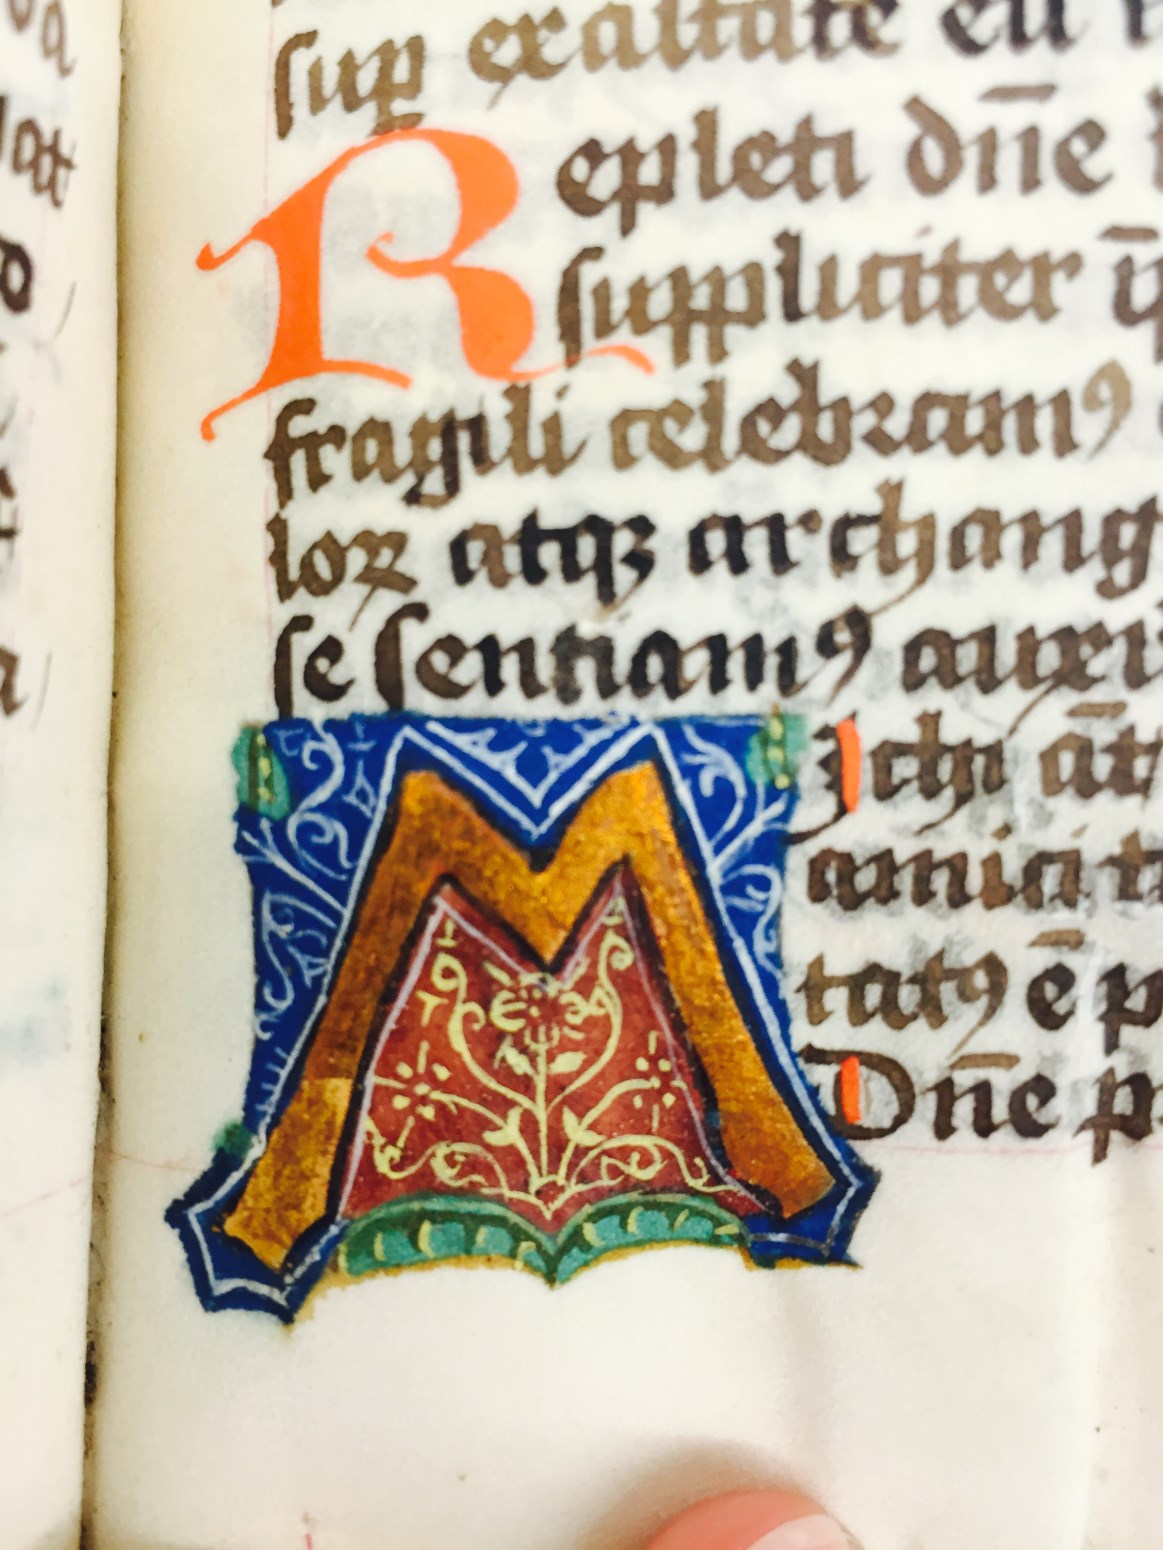 sup exaltate eu
Repleti dn̄e
suppliciter q̄
fragili celebramꝰ
loꝝ atqꝫ archang
se sentiamꝰ auxi
Michi āt
amici t
tatꝰ ē p
Dn̄e p